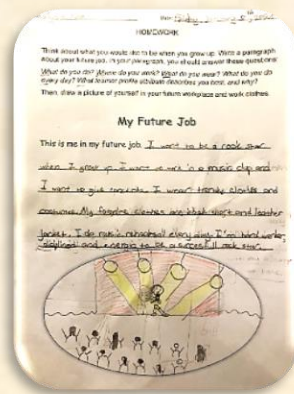 HOMEWORK
Think about what you would like to be when you grow up. Write a paragraph
about your future job. In your paragraph, you should answer these questions:
What do you do? Where do you work? What do you wear? What do you do
every day? What learner profile attribute describes you best, and why?
Then, draw a picture of yourself in your future workplace and work clothes.
My Future Job
This is me in my future job. I want to be a rock star
when I grow up. I want to work in a music clup and
I want to give concerts. I wear trendy clothes and
costumes. My favorite clothes are short and leather
jacket. I do music rehearsal every day. I'm hard worker,
and energic to be a rock star.